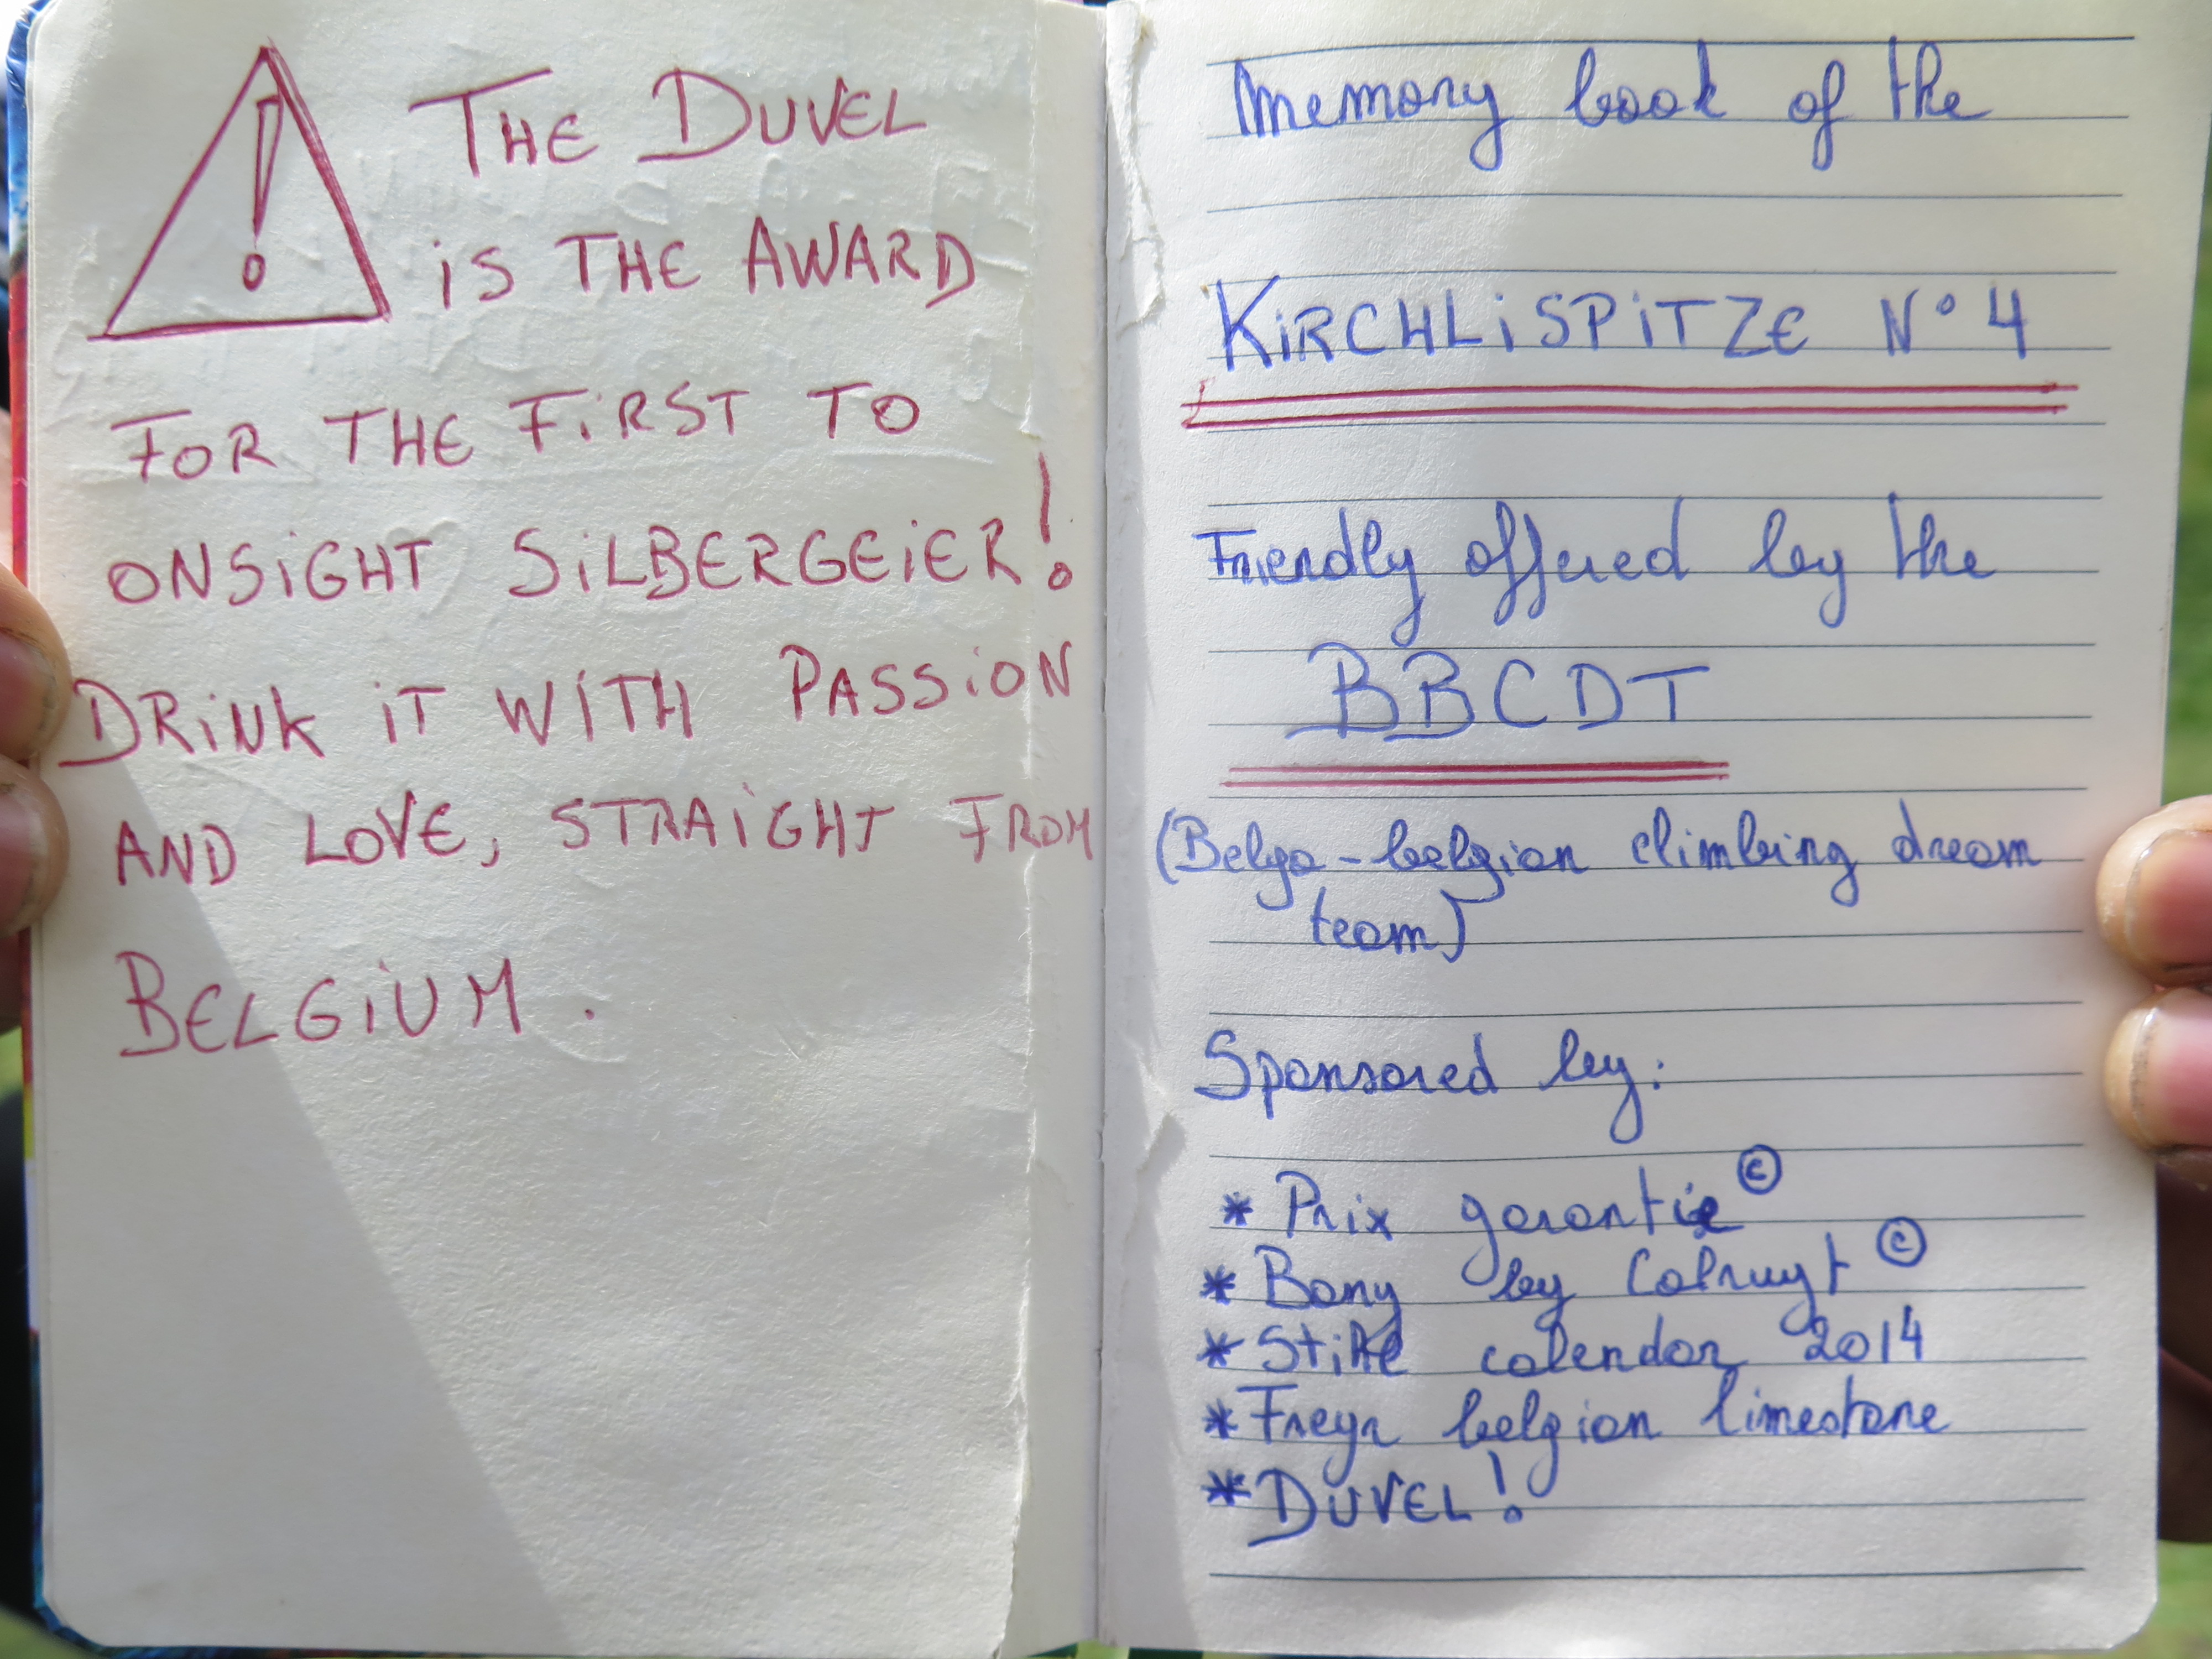 THE DUVEL
IS THE AWARD
FOR THE FIRST TO
ONSIGHT SILBERGEIER!
DRINK IT WITH PASSION
AND LOVE, STRAIGHT FROM
BELGIUM.
Memory book of the
KIRCHLISPITZE N°4
Friendly offered by the
BBCDT
(Belgo-belgian climbing dream
team)
Sponsored by:
* Prix garantie ©
* Bony by Colruyt ©
* Stihl calendar 2014
* Freyr belgian limestone
* DUVEL!